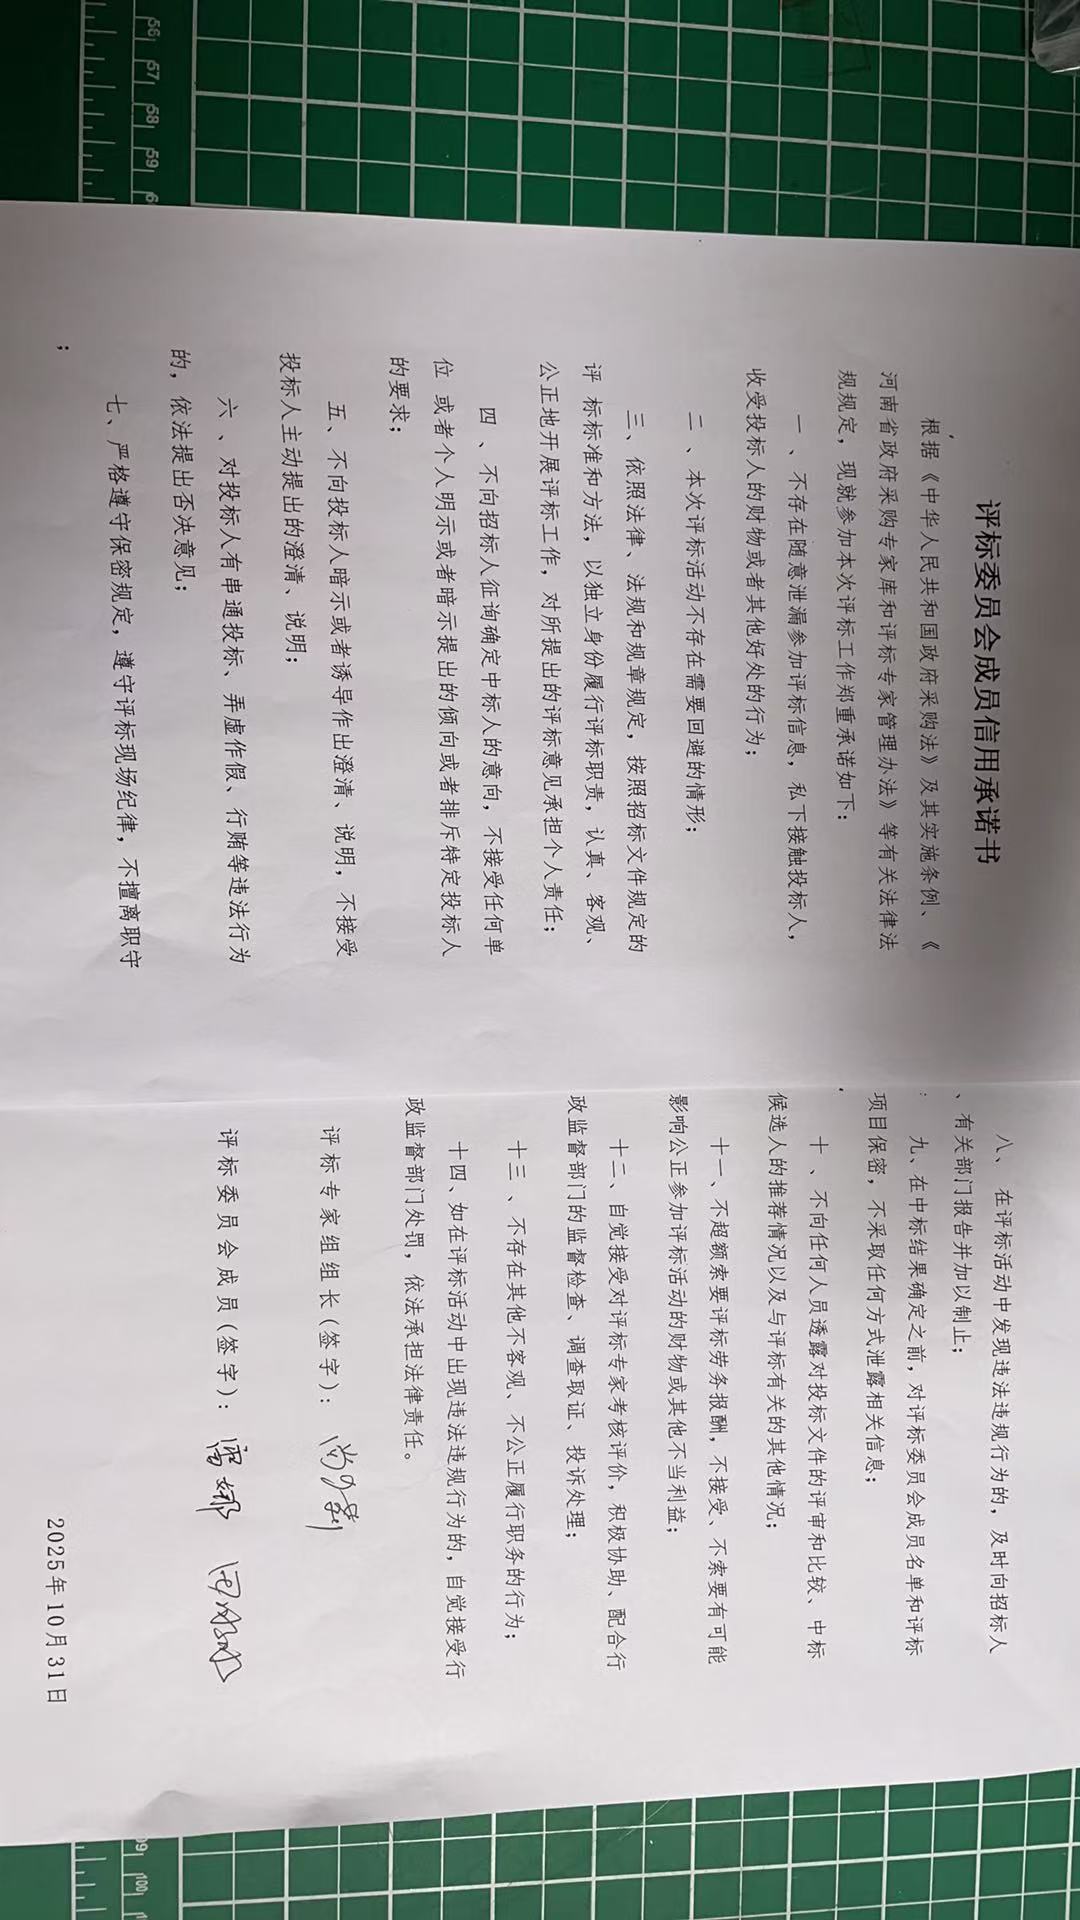 评标委员会成员信用承诺书
根据《中华人民共和国政府采购法》及其实施条例、《
河南省政府采购专家库和评标专家管理办法》等有关法律法
规规定，现就参加本次评标工作郑重承诺如下：
一、不存在随意泄漏参加评标信息，私下接触投标人，
收受投标人的财物或者其他好处的行为；
二、本次评标活动不存在需要回避的情形；
三、依照法律、法规和规章规定，按照招标文件规定的
评 标标准和方法，以独立身份履行评标职责，认真、客观、
公正地开展评标工作，对所提出的评标意见承担个人责任；
四、不向招标人征询确定中标人的意向，不接受任何单
位 或者个人明示或者暗示提出的倾向或者排斥特定投标人
的要求；
五、不向投标人暗示或者诱导作出澄清、说明，不接受
投标人主动提出的澄清、说明；
六、对投标人有串通投标、弄虚作假、行贿等违法行为
的，依法提出否决意见；
七、严格遵守保密规定，遵守评标现场纪律，不擅离职守
；
八、在评标活动中发现违法违规行为的，及时向招标人
、有关部门报告并加以制止；
九、在中标结果确定之前，对评标委员会成员名单和评标
项目保密，不采取任何方式泄露相关信息；
十、不向任何人员透露对投标文件的评审和比较、中标
候选人的推荐情况以及与评标有关的其他情况；
十一、不超额索要评标劳务报酬，不接受、不索要有可能
影响公正参加评标活动的财物或其他不当利益；
十二、自觉接受对评标专家考核评价，积极协助、配合行
政监督部门的监督检查、调查取证、投诉处理；
十三、不存在其他不客观、不公正履行职务的行为；
十四、如在评标活动中出现违法违规行为的，自觉接受行
政监督部门处罚，依法承担法律责任。
评标专家组组长（签字）：
评标委员会成员（签字）：
2025年10月31日
56
57
58
59
6
99
100